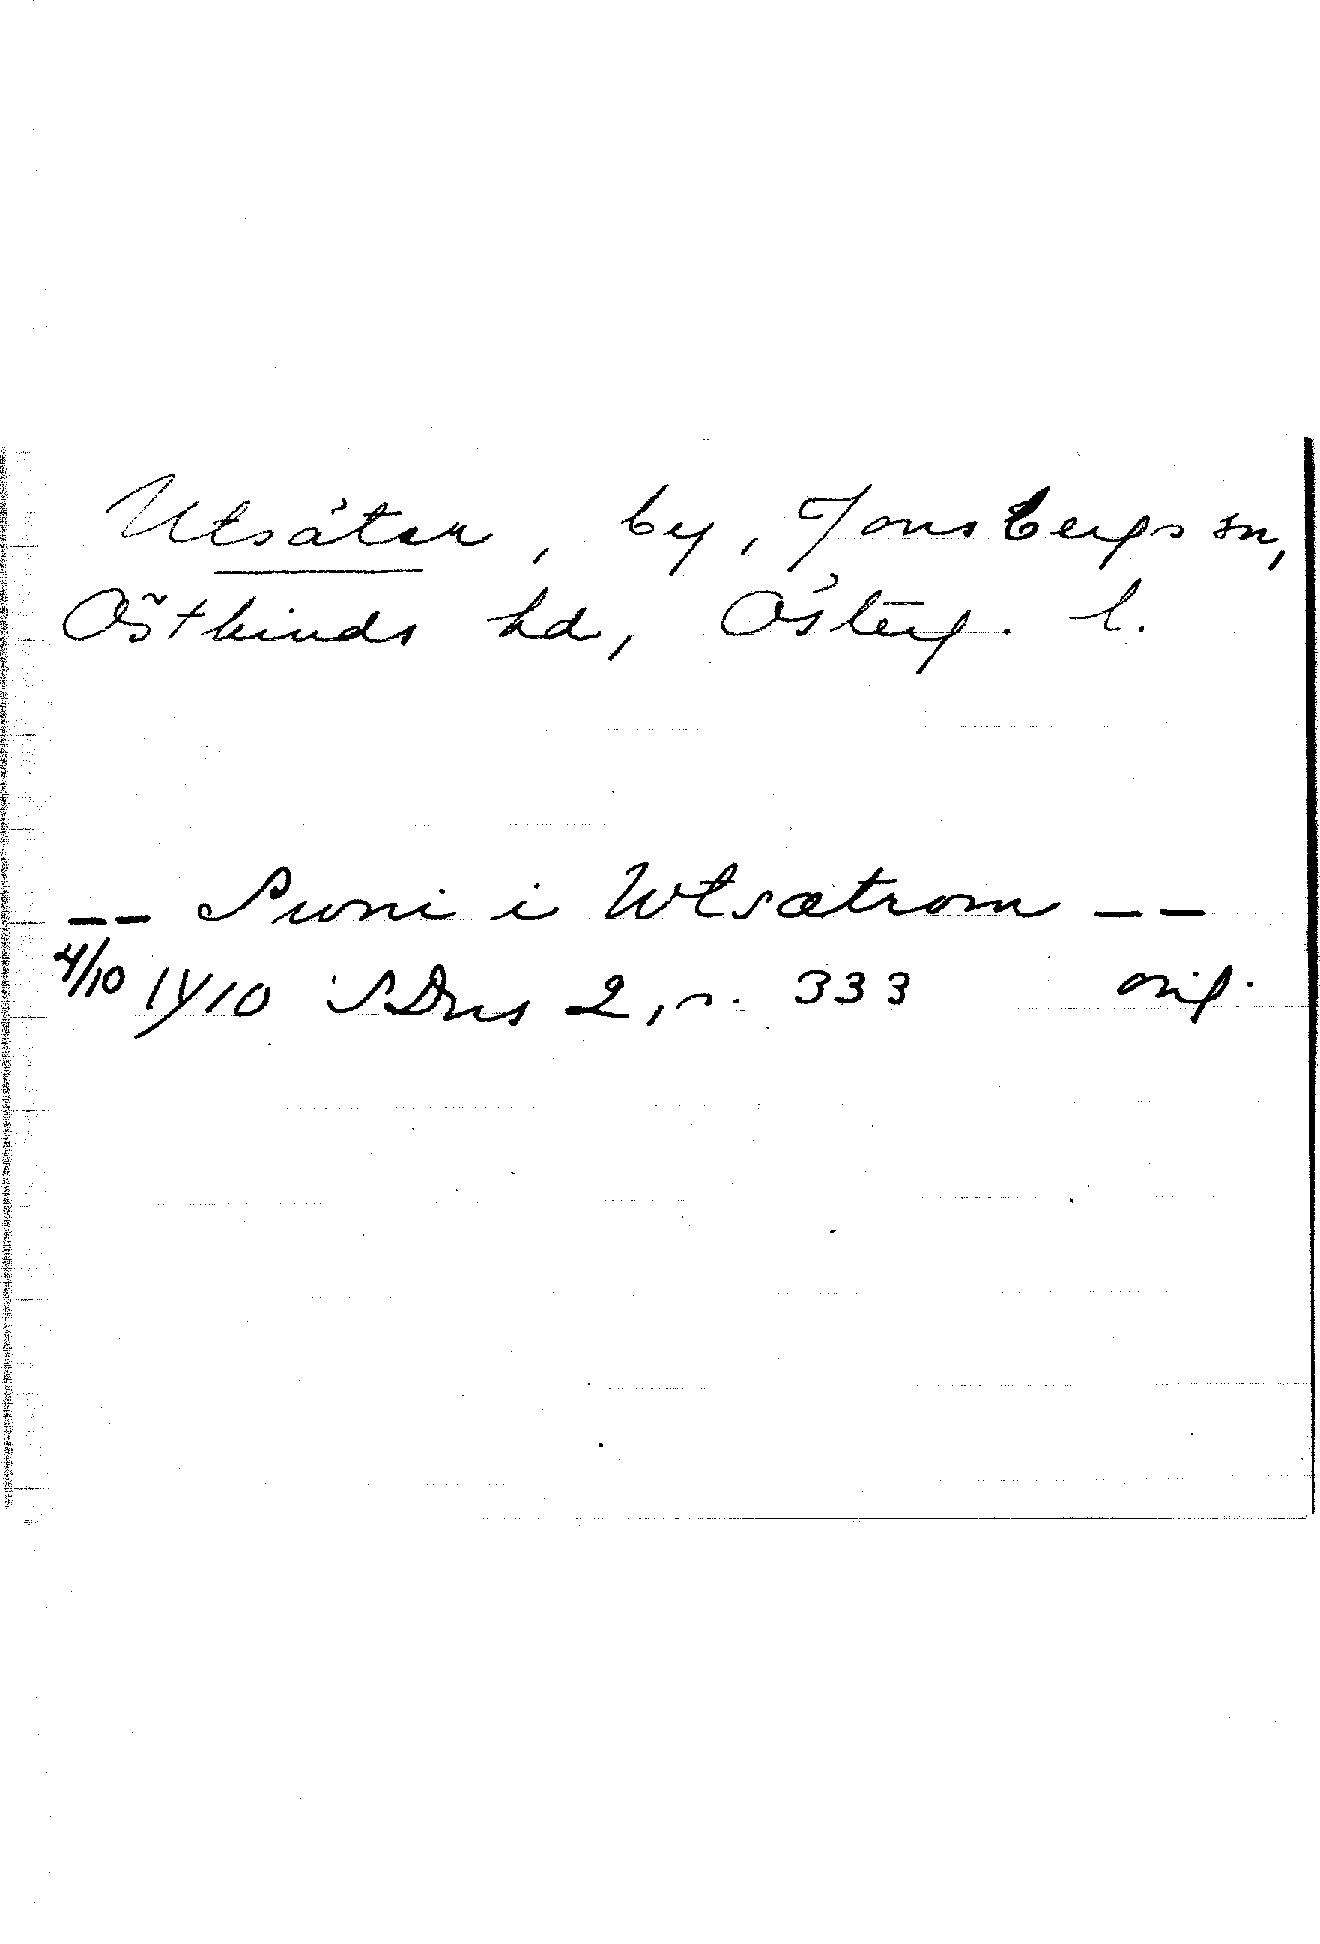 Utsätter, by, Jonsbergs sn,
Östkinds hd, Österg. l.
-- Swni i Wtsætrom --
4/10 1410 SDns 2, s. 333 orig.